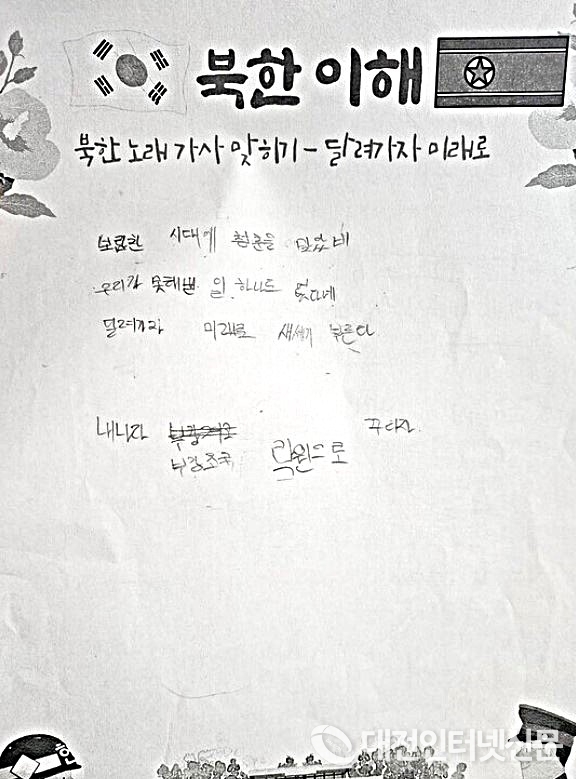 북한 이해
북한 노래 가사 맞히기 - 달려가자 미래로
시대에 청춘을
우리가 못해낸 일 하나도 없다네
달려가자 미래로 새세기 부른다
내나라
부강조국 락원으로 꾸리자
대전인터넷신문